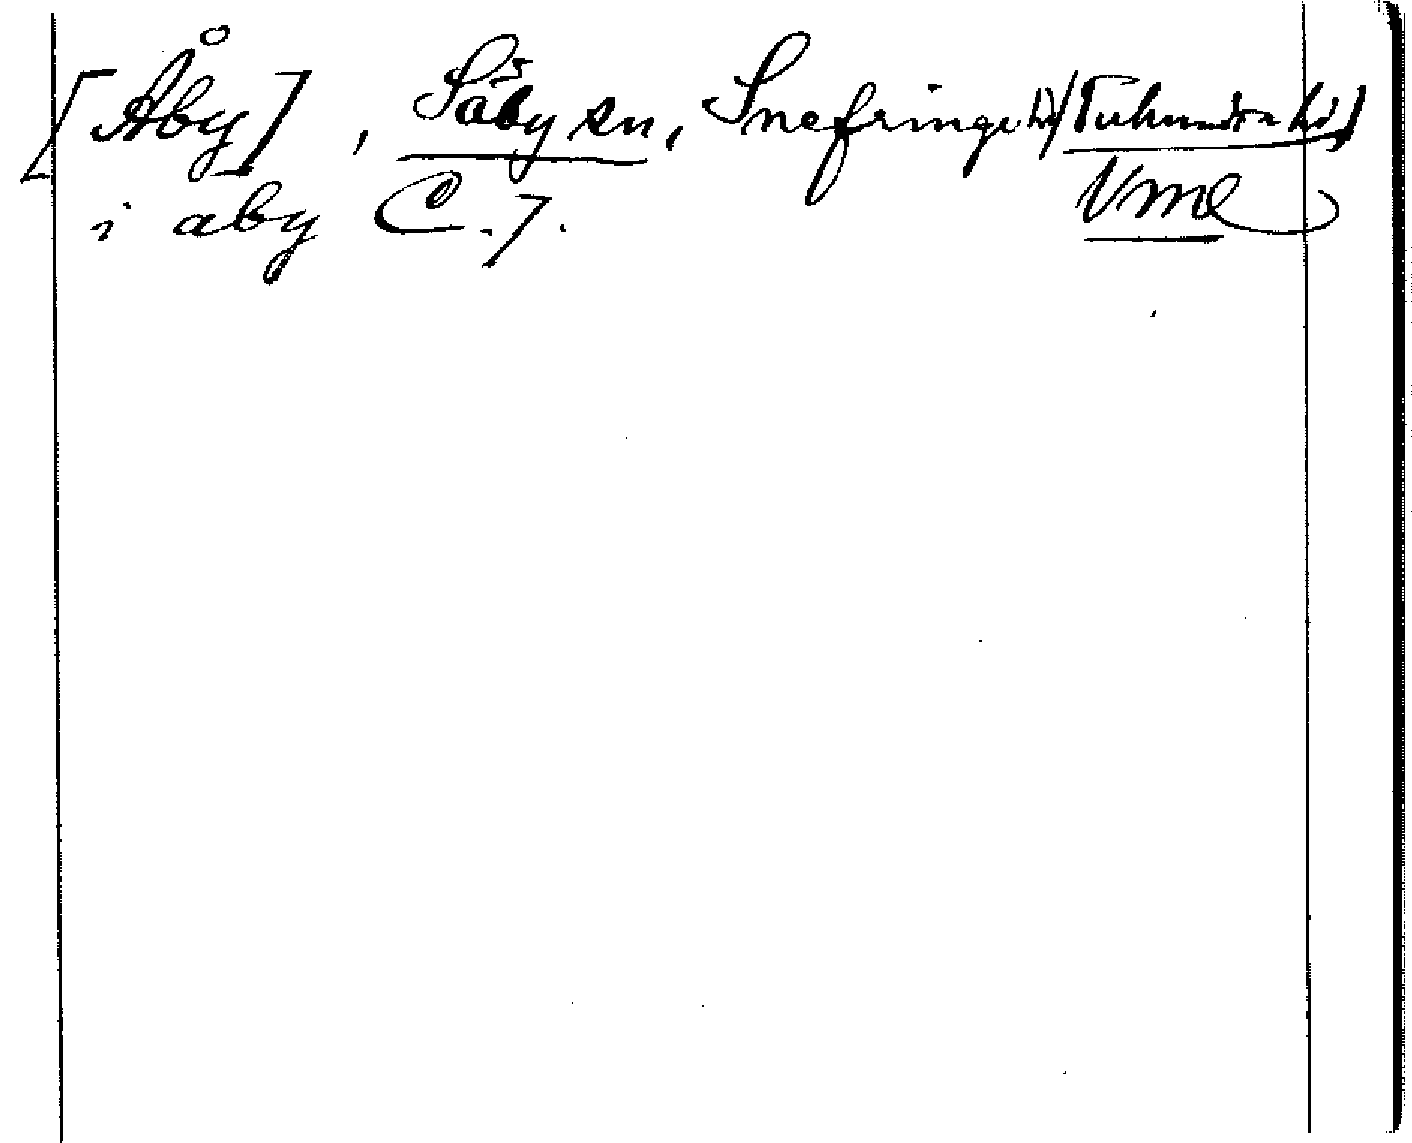 [Åby], Säby sn, Snefringe hd / Tuhundra hd]
i aby C. 7. Vml